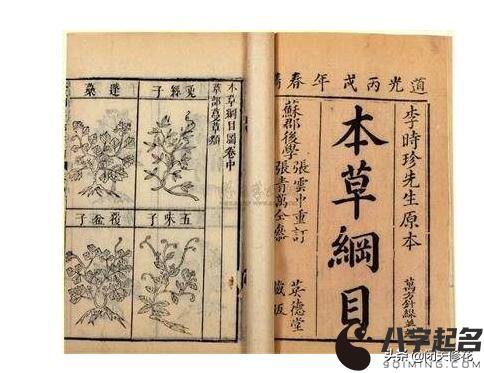 道光丙戌年春
李時珍先生原本
萬方針線
本草綱目
蘇郡後學
張雲中重訂
張青萬仝參
英德堂
藏版
本草綱目圖卷中
草部蔓草類
絲子
蓬
五味子
覆盆子
八字起名
头条 @闭关修花